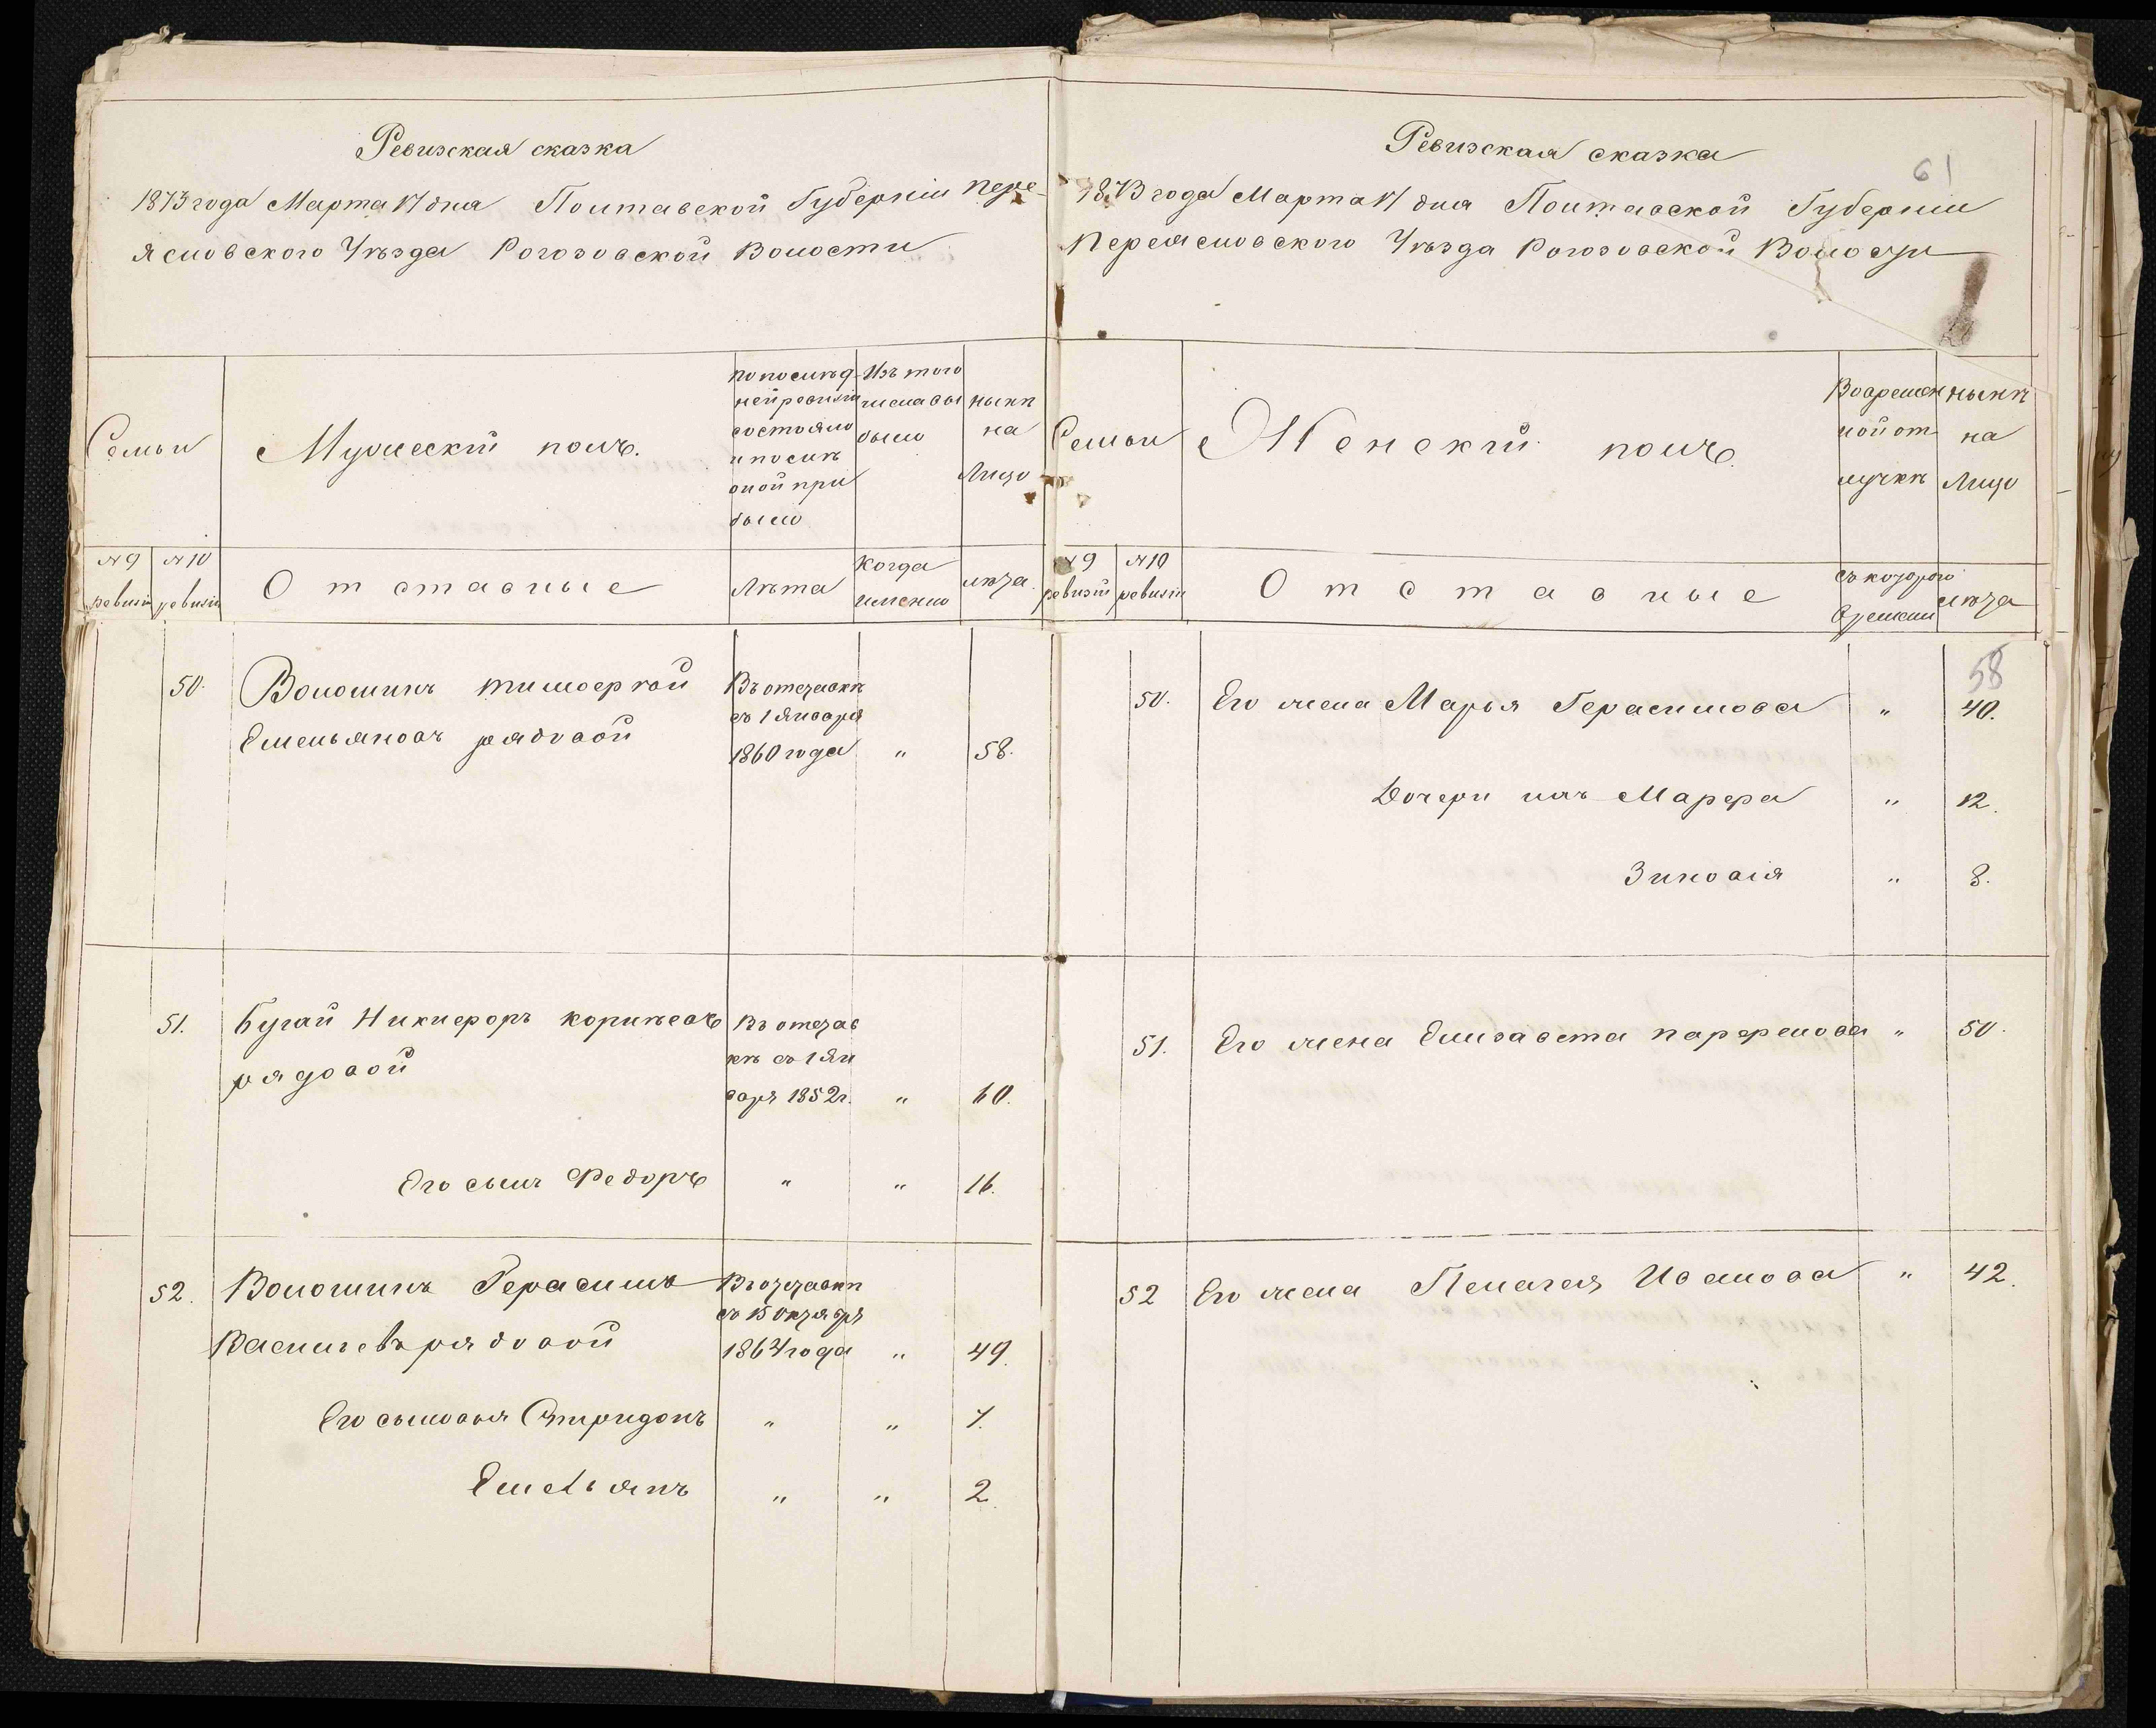 Ревизская сказка
1873 года Марта 17 дня Полтавской Губерніи Пере-
яславского Уѣзда Рогозовской Волости
Семьи
Мужескій полъ.
по послѣд-
ней ревизіи
состояло
и послѣ
оной при
было
Изъ того
числа вы
было
нынѣ
на
Лицо
№ 9
ревизіи
№ 10
ревизіи
Отставные
Лѣта
когда
именно
лѣта
50.
Волошинъ Тимофѣй
Емельяновъ рядовой
Въ отставкѣ
съ 1 Января
1860 года
"
58.
51.
Бугай Никифоръ Корнѣевъ
рядовой
Въ отстав
кѣ съ 1 Ян
варя 1852 г.
"
60.
Его сынъ Федоръ
"
"
16.
52.
Волошинъ Герасимъ
Васильевъ рядовой
Въ отставкѣ
съ 15 Октября
1864 года
"
49.
Его сыновья Спиридонъ
"
"
7.
Емельянъ
"
"
2.
61
Ревизская сказка
1873 года Марта 17 дня Полтавской Губерніи
Переяславского Уѣзда Рогозовской Волости
Семьи
Женскій полъ.
Во времен
ной от
лучкѣ
нынѣ
на
Лицо
№ 9
ревизіи
№ 10
ревизіи
Отставные
съ которого
времени
лѣта
58
50.
Его жена Марья Герасимова
"
40.
Дочери ихъ Марфа
"
12.
Зиновія
"
8.
51.
Его жена Елизавета Парфенова
"
50.
52
Его жена Пелагея Иванова
"
42.